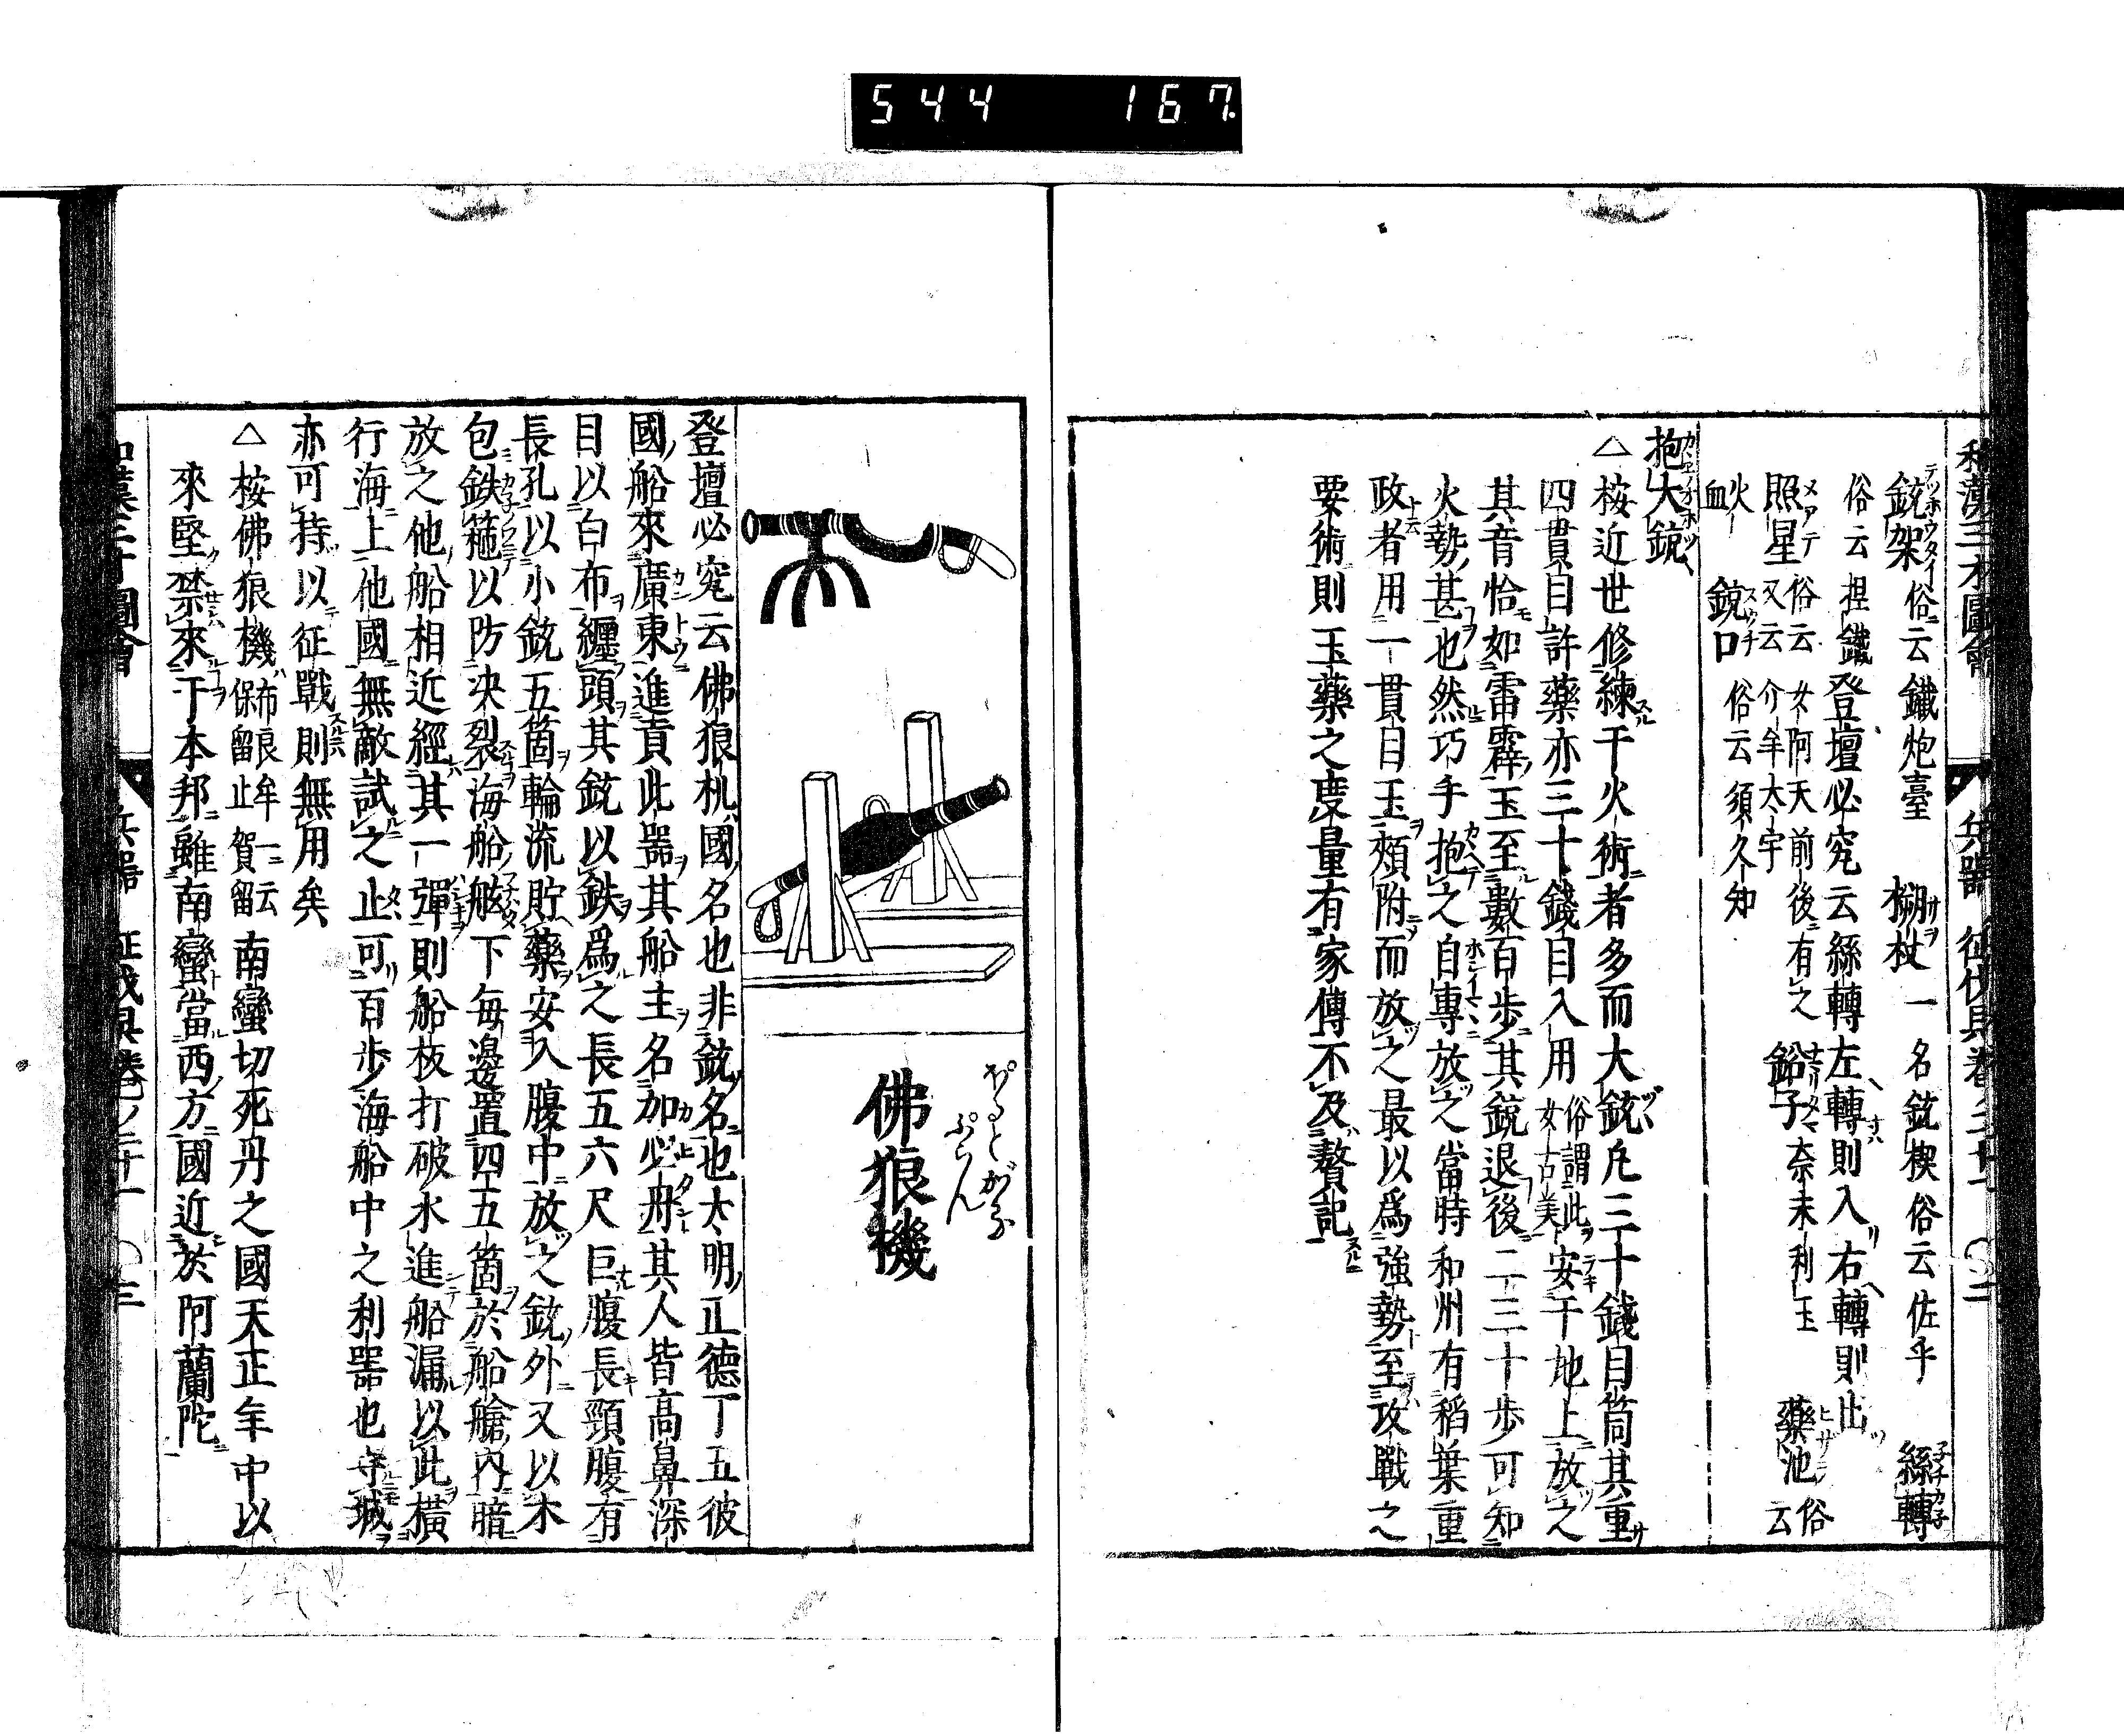 544 167
和漢三才圖會 兵器 征伐具 卷ノ二十一 ○二
銃架 俗云鐵炮臺 棚杖 一名銃楔俗云佐乎 絲轉
俗云捏鐵 登壇必究云絲轉左轉則入右轉則出
照星 俗云女阿天前後有之 又云介牟太宇 鉛子 奈未利玉 藥池 俗云
火血 銃口 俗云須久知
抱大銃
△按近世修練于火術者多而大銃凡三十錢目筒其重
四貫目許藥亦三十錢目入用 俗謂此女古美 安于地上放之
其音恰如雷霹玉至數百步其銃退後二三十步可知
火勢甚也然巧手抱之自專放之當時和州有稻葉重
政者用一貫目玉頰附而放之最以爲強勢至攻戰之
要術則玉藥之度量有家傳不及贅記
佛狼機
登壇必究云佛狼机國名也非銃名也大明正德丁五彼
國船來廣東進貢此器其船主名加必丹其人皆高鼻深
目以白布纏頭其銃以鉄爲之長五六尺巨腹長頸腹有
長孔以小銃五箇輪流貯藥安入腹中放之銃外又以木
包鉄箍以防決裂海船舷下每邊置四五箇於船艙內暗
放之他船相近經其一彈則船板打破水進船漏以此橫
行海上他國無敵試之止可百步海船中之利器也守城
亦可持以征戰則無用矣
△按佛狼機 布良牟 一云 保留止賀留 南蠻切死丹之國天正年中以
來堅禁來于本邦雖南蠻當西方國近於阿蘭陀
和漢三才圖會 兵器 征伐具 卷ノ二十一 ○三